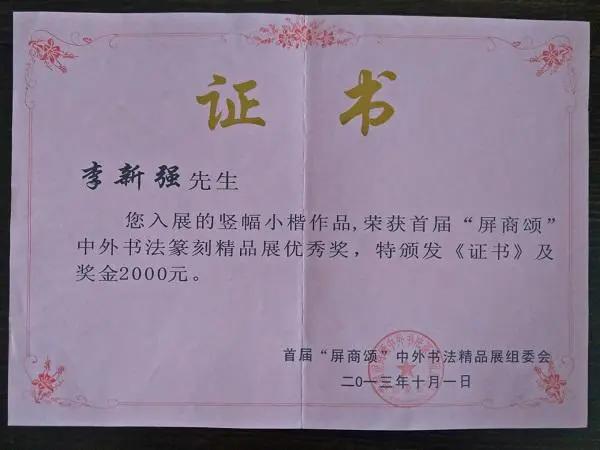 证书
李新强先生
您入展的竖幅小楷作品,荣获首届“屏商颂”
中外书法篆刻精品展优秀奖，特颁发《证书》及
奖金2000元。
首届“屏商颂”中外书法精品展组委会
二〇一三年十月一日